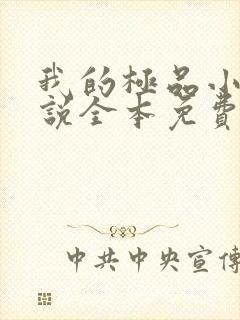 我的極品小
說全本免費
中共中央宣傳